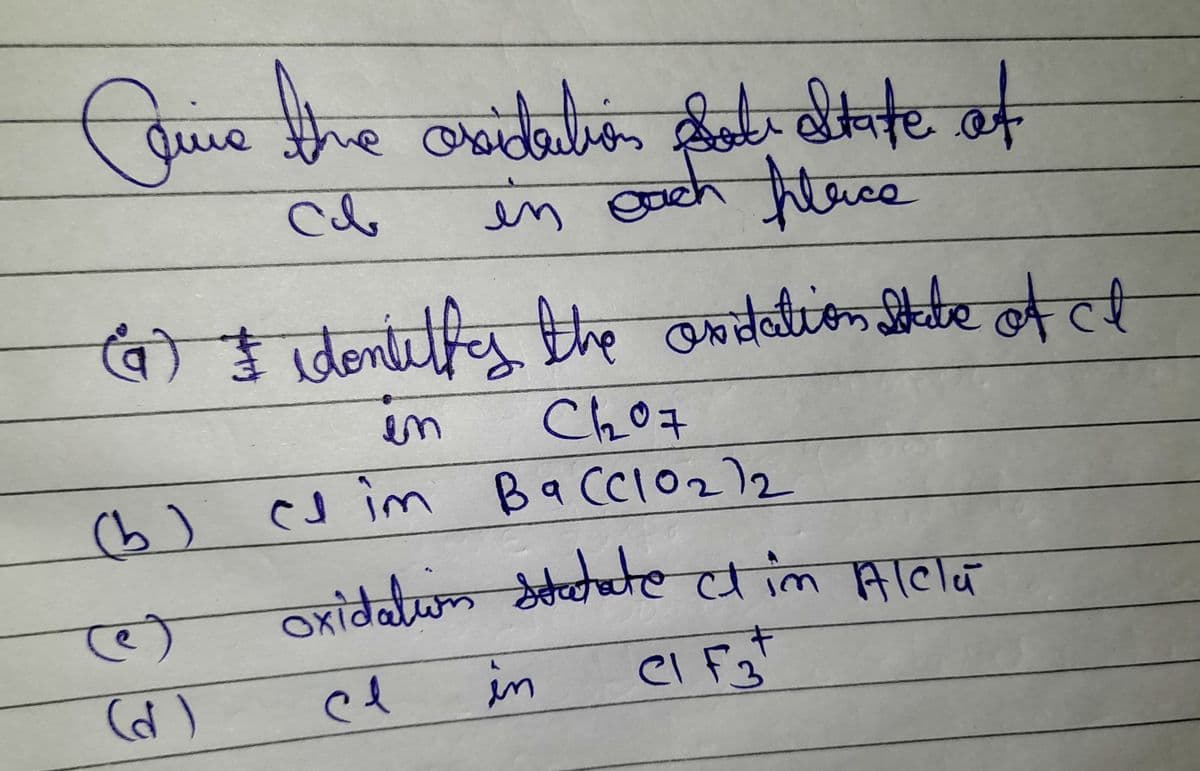 Give the oxidation State of
Cl in each place
(a) identify the oxidation State of cl
in Cl2O7
(b) cl in Ba(ClO2)2
(c) oxidation statate cl in AlCl4-
(d) cl in ClF3+